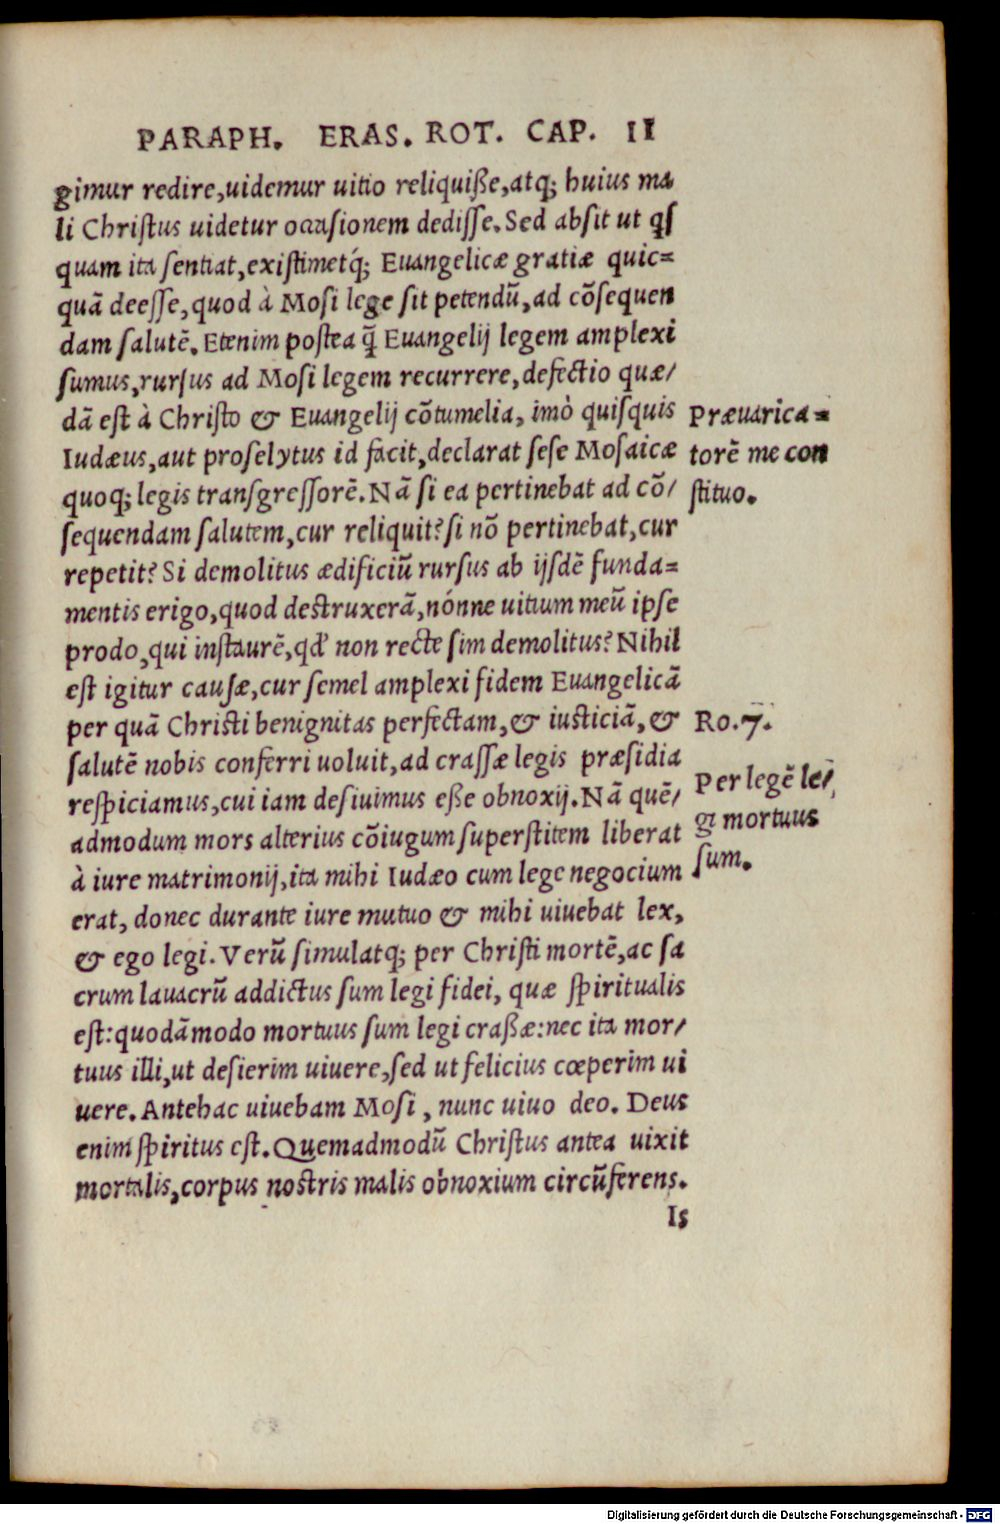 PARAPH. ERAS. ROT. CAP. II
gimur redire,uidemur uitio reliquiße,atq; huius ma
li Christus uidetur occasionem dedisse. Sed absit ut qs
quam ita sentiat,existimetq́; Euangelicæ gratiæ quic=
quā deesse,quod à Mosi lege sit petendū,ad cōsequen
dam salutē. Etenim postea q̄ Euangelij legem amplexi
sumus,rursus ad Mosi legem recurrere,defectio quæ/
dā est à Christo & Euangelij cōtumelia, imò quisquis
Iudæus,aut proselytus id facit,declarat sese Mosaicæ
quoq; legis transgressorē. Nā si ea pertinebat ad cō/
sequendam salutem,cur reliquit? si nō pertinebat,cur
repetit? Si demolitus ædificiū rursus ab ijsdē funda=
mentis erigo,quod destruxerā,nónne uitium meū ipse
prodo,qui instaurē,qd' non recte sim demolitus? Nihil
est igitur causæ,cur semel amplexi fidem Euangelicā
per quā Christi benignitas perfectam,& iusticiā,&
salutē nobis conferri uoluit,ad crassæ legis præsidia
respiciamus,cui iam desiuimus eße obnoxij. Nā quē/
admodum mors alterius cōiugum superstitem liberat
à iure matrimonij,ita mihi Iudæo cum lege negocium
erat, donec durante iure mutuo & mihi uiuebat lex,
& ego legi. Verū simulatq; per Christi mortē,ac sa
crum lauacrū addictus sum legi fidei, quæ spiritualis
est: quodāmodo mortuus sum legi craßæ: nec ita mor/
tuus illi,ut desierim uiuere,sed ut felicius cœperim ui
uere. Antehac uiuebam Mosi, nunc uiuo deo. Deus
enim spiritus est. Quemadmodū Christus antea uixit
mortalis,corpus nostris malis obnoxium circūferens.
Is
Præuarica=
torē me con
stituo.
Ro.7.
Per legē le/
gi mortuus
sum.
Digitalisierung gefördert durch die Deutsche Forschungsgemeinschaft - DFG